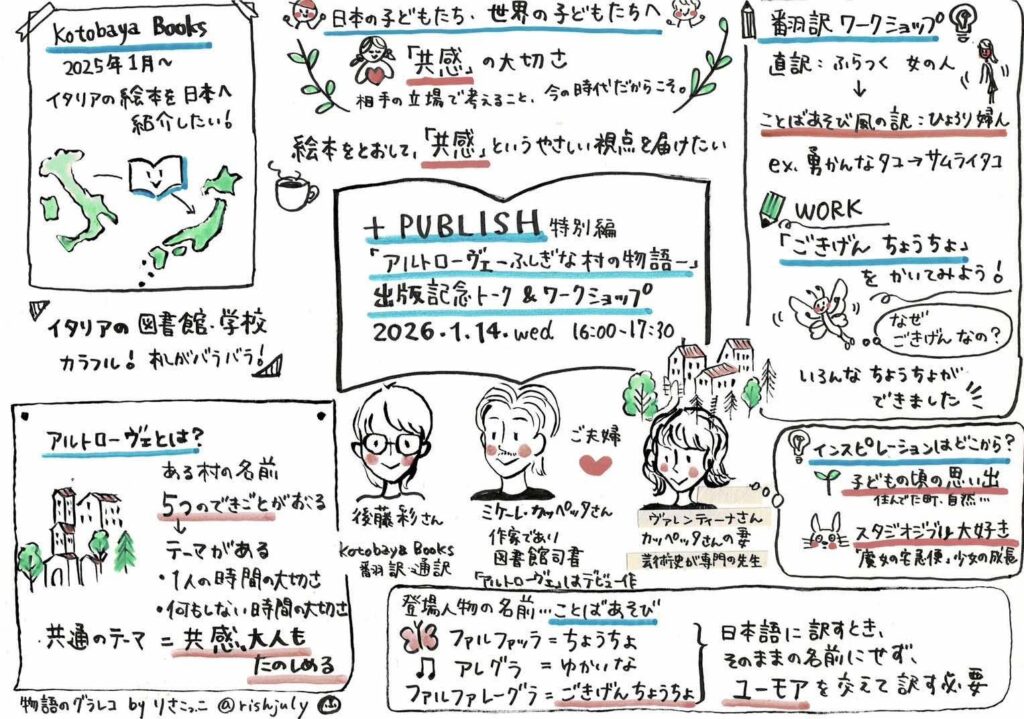 Kotobaya Books
2025年1月〜
イタリアの絵本を日本へ
紹介したい!
日本の子どもたち、世界の子どもたちへ
「共感」の大切さ
相手の立場で考えること、今の時代だからこそ。
絵本をとおして、「共感」というやさしい視点を届けたい
+ PUBLISH 特別編
「アルトローヴェーふしぎな村の物語ー」
出版記念トーク & ワークショップ
2026.1.14.wed 16:00~17:30
翻訳 ワークショップ
直訳:ふらつく 女の人
↓
ことばあそび風の訳:ひょろり婦人
ex. 勇かんなタコ→サムライタコ
WORK
「ごきげん ちょうちょ」
をかいてみよう!
なぜ
ごきげん なの?
いろんな ちょうちょが
できました
イタリアの 図書館・学校
カラフル! 札がバラバラ!
アルトローヴェとは?
ある村の名前
5つのできごとがおこる
↓
テーマがある
・1人の時間の大切さ
・何もしない時間の大切さ
・共通のテーマ = 共感、大人も
たのしめる
後藤彩さん
Kotobaya Books
翻訳・通訳
ミケーレ・カッペッタさん
作家であり
図書館司書
「アルトローヴェ」はデビュー作
ご夫婦
ヴァレンティーナさん
カッペッタさんの妻
芸術史が専門の先生
インスピレーションはどこから?
子どもの頃の思い出
住んでた町、自然…
スタジオジブリ大好き
「魔女の宅急便」少女の成長
登場人物の名前…ことばあそび
ファルファッラ = ちょうちょ
アレグラ = ゆかいな
ファルファレーグラ = ごきげんちょうちょ
日本語に訳すとき、
そのままの名前にせず、
ユーモアを交えて訳す必要
物語のグラレコ by りさこっこ @rishjuly